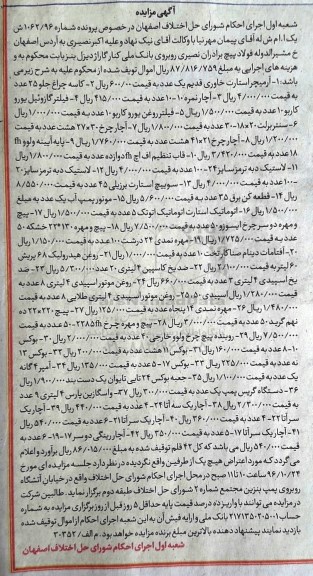 آگهی مزایده
شعبه اول اجرای احکام شورای حل اختلاف اصفهان در خصوص پرونده شماره ۱۰۶۲/۹۶ ش
یک ا.ا.م ش له آقای پیمان مهرنیا با وکالت آقای نیک نهاد و علیه اکبر نصیری به آدرس اصفهان
خ مشیرالدوله فولاد پیچ برادران نصیری روبروی بانک ملی کنار گاراژ دیزل بنز بابت محکوم به و
هزینه های اجرایی به مبلغ ۸۷/۸۱۶/۷۵۹ ریال اموال توقیف شده از محکوم علیه به شرح زیر می
باشد: ۱- آرمیچر استارت خاوری قدیم یک عدد به قیمت ۶۰۰/۰۰۰ ریال ۲- کاسه چراغ جلو ۲۵ عدد
به قیمت ۴/۰۰۰/۰۰۰ ریال ۳- آچار نمره ۱۰-۱۰۰ عدد به قیمت ۴۱۵/۰۰۰ ریال ۴- فیلتر گازوئیل یورو
کاربو ۱۰ عدد به قیمت ۱/۵۰۰/۰۰۰ ریال ۵- فیلتر روغن یورو کاربو ۱۰ عدد به قیمت ۱/۰۰۰/۰۰۰ ریال
۶- سنتر بلت ۲۰×۱۸-۳۰ عدد به قیمت ۱/۸۰۰/۰۰۰ ریال ۷- آچار چرخ ۳۰×۲۷ هشت عدد به قیمت
۱/۲۰۰/۰۰۰ ریال ۸- آچار چرخ ۲۱×۴۱ هشت عدد به قیمت ۱/۷۶۰/۰۰۰ ریال ۹- پایه آیینه ولوو fh
۱۸ عدد به قیمت ۳/۴۲۰/۰۰۰ ریال ۱۰- قاب تنظیم اف اچ fh دوازده عدد به قیمت ۱/۸۰۰/۰۰۰ ریال
۱۱- لاستیک دبه ترمز سایز ۲۴-۱۰۰ عدد به قیمت ۴/۰۰۰/۰۰۰ ریال ۱۲- لاستیک دبه ترمز سایز ۲۰
-۱۰۰ عدد به قیمت ۴/۰۰۰/۰۰۰ ریال ۱۳- سوییچ استارت برزیلی ۴۵ عدد به قیمت ۸/۵۵۰/۰۰۰
ریال ۱۴- قطعه کن برق ۳۵ عدد به قیمت ۵/۶۰۰/۰۰۰ ریال ۱۵- موتور پمپ آب یک عدد به مبلغ
۱/۵۰۰/۰۰۰ ریال ۱۶- اتوماتیک استارت اتوماتیک اتونک ۵ عدد به قیمت ۱/۵۰۰/۰۰۰ ریال ۱۷- پیچ
و مهره دو سر چرخ ایسوزو ۵۰ عدد به قیمت ۷/۵۰۰/۰۰۰ ریال ۱۸- پیچ و مهره ۱۳×۲۲۴ خشکه ۵۰
عدد به قیمت ۱/۷۲۵/۰۰۰ ریال ۱۹- مهره نمدی ۲۴ درشت ۱۰۰ عدد به قیمت ۱/۱۵۰/۰۰۰ ریال
۲۰- آفتامات دینام صنا کار تخت ۱۰ عدد به قیمت ۱/۰۰۰/۰۰۰ ریال ۲۱- روغن هیدرولیک ۶۸ پریش
۲۰ لیتری به قیمت ۸۰۰/۰۰۰ ریال ۲۲- ضد یخ کاسپین ۴ لیتری ۲۰ عدد ۵/۳۰۰/۰۰۰ ریال ۲۳- ضد
یخ اسپیدی ۴ لیتری ۳ عدد به قیمت ۶۶۰/۰۰۰ ریال ۲۴- روغن موتور اسپیدی ۴ لیتری ۸ عدد به
قیمت ۱/۲۸۰/۰۰۰ ریال اسپیدی ۵۰، ۲۵- روغن موتور اسپیدی ۴ لیتری طلایی ۸ عدد به قیمت
۱/۴۸۰/۰۰۰ ریال ۲۶- مهره نمدی ۱۴ پنجاه عدد به قیمت ۱۲۵/۰۰۰ ریال ۲۷- پیچ ۲۲۰×۲۲ ده
نهم گرید ۵۰ عدد به قیمت ۳/۰۰۰/۰۰۰ ریال ۲۸- پیچ و مهره چرخ ۲۲۸۵fh ۵۰ عدد به قیمت
۷/۵۰۰/۰۰۰ ریال ۲۹- روبنده پیچ چرخ ولوو خارجی ۲۰ عدد به قیمت ۲/۰۰۰/۰۰۰ ریال ۳۰- بوکس
۱۰-۸ عدد به قیمت ۱۶۰/۰۰۰ ریال ۳۱- بوکس ۱۱ هشت عدد به قیمت ۲۰۰/۰۰۰ ریال ۳۲- بوکس ۱۳
نه عدد به قیمت ۲۲۵/۰۰۰ ریال ۳۳- بوکس ۱۷-۵ عدد به قیمت ۱۳۵/۰۰۰ ریال ۳۴- آمپر ۴ گانه
یک عدد به قیمت ۱/۱۰۰/۰۰۰ ریال ۳۵- جعبه بوکس ۲۴ تایی تایوان یک دست بند ۱/۹۰۰/۰۰۰ ریال
۳۶- دستگاه گریس پمپ یک عدد به قیمت ۳۰۰/۰۰۰ ریال ۳۷- واسگازین پارس ۴ لیتری ۹ عدد
به قیمت ۲/۳۰۰/۰۰۰ ریال ۳۸- آچار یک سر آتا ۲۴-۴ عدد به قیمت ۴۴۰/۰۰۰ ریال ۳۹- آچار یک
سر آتا ۲۲-۴ عدد به قیمت ۳۶۰/۰۰۰ ریال ۴۰- آچار یک سر آتا ۲۱-۶ عدد به قیمت ۵۴۰/۰۰۰ ریال
۴۱- آچار یک سر آتا ۱۷-۵ عدد به قیمت ۳۵۰/۰۰۰ ریال ۴۲- آچار رینگی دو سر ۱۷-۱۹-۶ عدد به
قیمت ۵۴۰/۰۰۰ ریال می باشد که کل ۴۲ قلم توقیف شده به مبلغ ۸۶/۰۱۵/۰۰۰ ریال برآورد و اعلام
می گردد که مورد اعتراض هیچ یک از طرفین واقع نگردیده در نظر دارد جلسه مزایده ای مورخ
۹۶/۱۰/۲۴ ساعت ۱۰ الی ۱۱ صبح در محل اجرای احکام شورای حل اختلاف واقع در خیابان آتشگاه
روبروی پمپ بنزین مجتمع شماره ۲ شورای حل اختلاف طبقه دوم برگزار نماید. طالبین شرکت
در مزایده می توانند با واریز ده درصد قیمت پایه حداقل ۵ روز قبل از روز برگزاری مزایده به شماره
حساب ۲۱۷۱۳۵۰۲۰۵۰۰۱ بانک ملی و ارایه فیش آن به این شعبه اجرای احکام از اموال توقیف شده
بازدید نمایند پیشنهاد دهنده بالاترین مبلغ برنده مزایده خواهد بود. م الف / ۳۰۳۵۲
شعبه اول اجرای احکام شورای حل اختلاف اصفهان